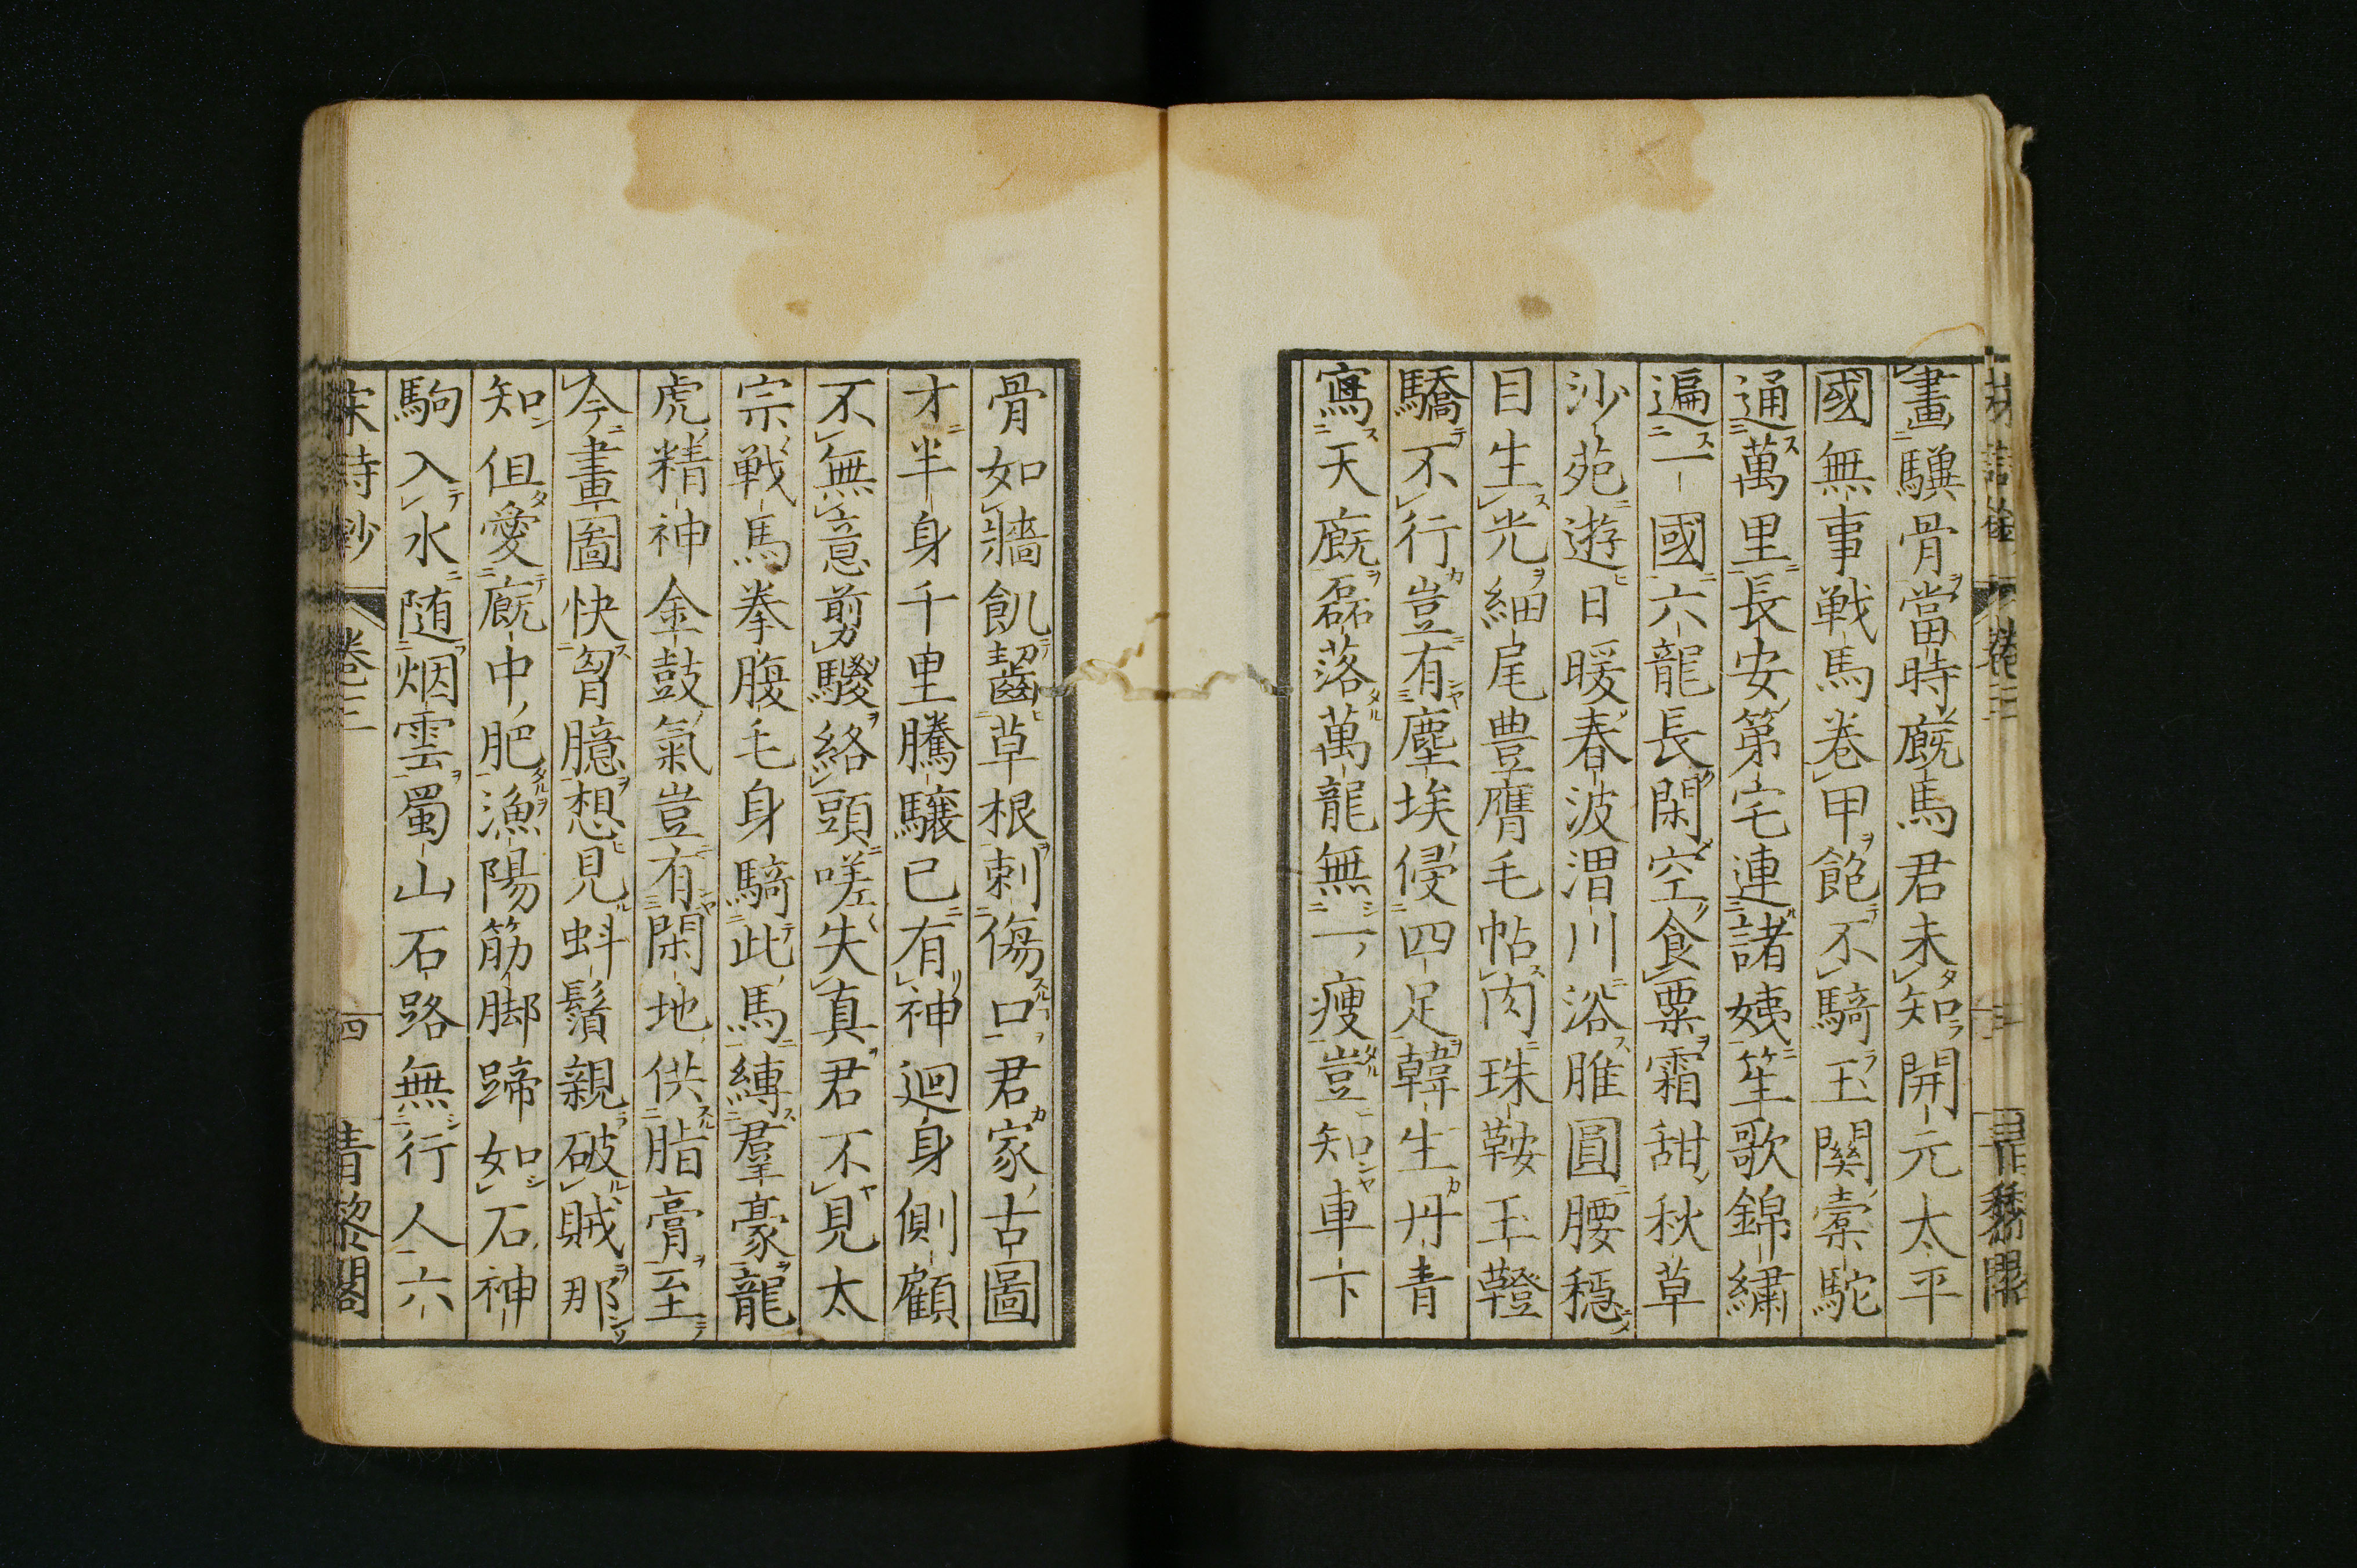 畫驥骨當時廐馬君未知開元太平
國無事戦馬卷甲飽不騎玉関橐駝
通萬里長安第宅連諸姨笙歌錦繡
遍一國六龍長閑空食粟霜甜秋草
沙苑遊日暖春波渭川浴脽圓腰穏
目生光細尾豊膺毛帖肉珠鞍玉鞾
驕不行豈有塵埃侵四足韓生丹青
寫天廐磊落萬龍無一瘦豈知車下
骨如牆飢齧草根刺傷口君家古圖
才半身千里騰驤已有神迴身側顧
不無意剪騣絡頭嗟失真君不見太
宗戦馬拳腹毛身騎此馬縛羣豪龍
虎精神金鼓氣豈有閑地供脂膏至
今畫圖快胷臆想見蚪鬚親破賊那
知但愛廐中肥漁陽筋脚蹄如石神
駒入水随烟雲蜀山石路無行人六
宋詩鈔 卷三 四 青黎閣